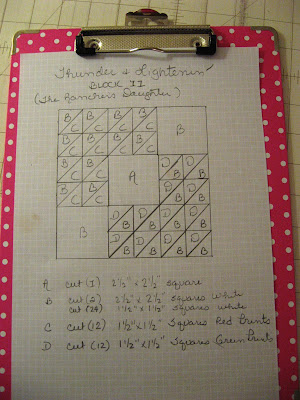 Thunder & Lightenin'
BLOCK II
(The Ranchers Daughter)
B B B B
C C C C
B
B B B B
C C C C
B B
C C
A
D D
B B
B B
C C
D D
B B
B
D D D D
B B B B
D D D D
B B B B
A cut (1) 2½" x 2½" square
B cut (2) 2½" x 2½" squares white
cut (24) 1½" x 1½" squares white
C cut (12) 1½" x 1½" Squares Red Prints
D cut (12) 1½" x 1½" Squares Green Prints